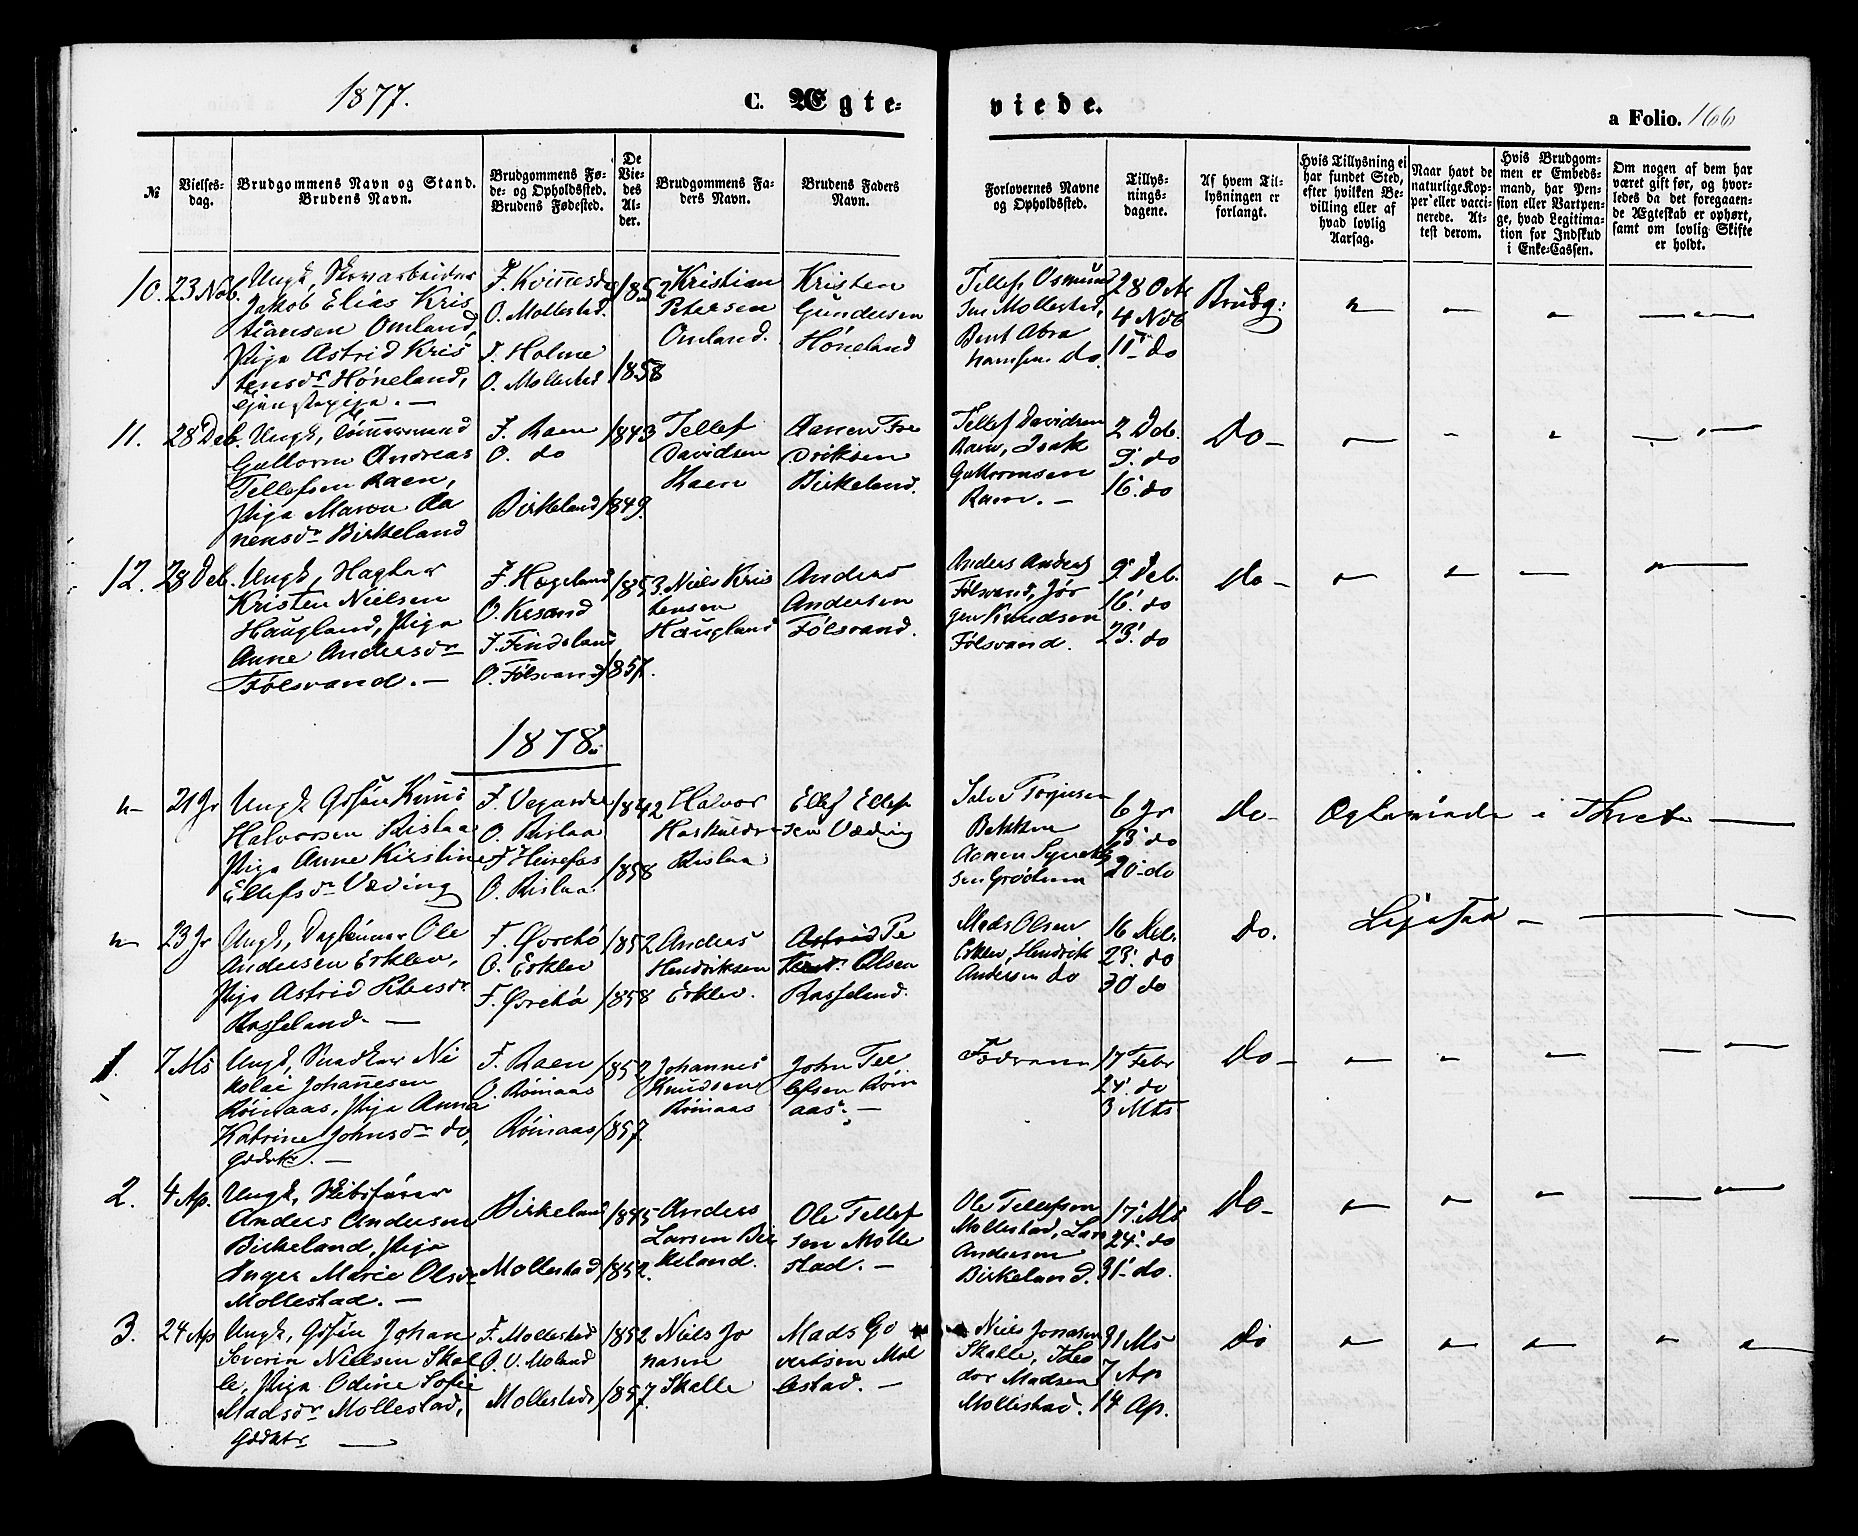 1877.
C. Ægte=
viede.
a Folio. 166
№
Vielses-
dag.
Brudgommens Navn og Stand.
Brudens Navn.
Brudgommens Fø-
de- og Opholdssted.
Brudens Fødested.
De
Vie-
des
Al-
der.
Brudgommens Fa-
ders Navn.
Brudens Faders
Navn.
Forlovernes Navne
og Opholdssted.
Tillys-
nings-
dagene.
Af hvem Til-
lysningen er
forlangt.
Hvis Tillysning ei
har fundet Sted,
efter hvilken Be-
villing eller af
hvad lovlig
Aarsag.
Naar havt de
naturlige Kop-
per eller vacci-
nerede. At-
test derom.
Hvis Brudgom-
men er Embeds-
mand, har Pen-
sion eller Vartpen-
ge, hvad Legitima-
tion for Indskud
i Enke-Cassen.
Om nogen af dem har
været gift før, og hvor-
ledes da det foregaaen-
de Ægteskab er ophørt,
samt om lovlig Skifte
er holdt.
10. 23 Nob.
Ungk,
Jakob Elias Kris
tiansen Omland,
Pige Astrid Kris
tensdr Høneland,
F. Kvinesd
O. Mollestad.
F. Holme
O. Mollestad
1852
1858
Kristian
Petersen
Omland.
Kristen
Gundersen
Høneland
Tellef Osmund
sen Mollestad,
Bent Abra
hamsen do.
28 Okt
4 Nob
11 do
Brudg:
11. 28 Deb.
Ungk, Tømmermand
Guttorm Andreas
Tellefsen Raen,
Pige Maren Aa
nensdr Birkeland
F. Raen
O. do
Birkeland
1843
1849.
Tellef
Davidsen
Raen
Aanen Fre
driksen
Birkeland.
Tellef Davidsen
Raen, Isak
Guttormsen
Raen. —
2 Deb.
9. do
16. do
Do —
12. 28 Deb.
Ungk,
Kristen Nielsen
Haugland, Pige
Anne Andersdr
Følsvand. —
F. Hægeland
O.
F. Findsland
O. Følsvand
1853.
1857.
Niels Kris
tensen
Haugland
Anders
Andersen
Følsvand.
Anders Anders
Følsvand, Jør
gen Knudsen
Følsvand.
9. Deb.
16. do
23. do
do —
1878.
21 Jr
Ungk Gdsøn Knud
Halvorsen Rislaa
Pige Anne Kirstine
Ellefsdr Væding
F. Vegardse
O. Rislaa
F.
O. Rislaa
1842
1858
Halvor
Rislaa
Ellef Ellef
sen Væding
Bakken
Aanen
6 Jr
13 do
20 do
do —
i
23 Jr
Ungk, Ole
Andersen Erklev,
Pige Astrid Petersdr
Rosseland. —
F. Øvrebø
O. Erklev
F. Øvrebø
1852
1858
Anders
Hendriksen
Erklev.
Astrid Pe
Olsen
Rosseland.
Mads Olsen
Erklev, Hendrik
Andersen do
16 Deb.
23. do
30 do
do.
1. 7 Ms
Ungk, Ni
kolai Johanesen
Røinaas, Pige Anna
Katrine Johnsdr do,
F. Raen
O. Røinaas
Røinaas
1852
1857.
Johannes
Knudsen
Røinaas
John Tel
lefsen Røin
aas. —
17 Febr
24. do
3 Mts
Do —
2. 4 Ap.
Ungk, Skibsfører
Anders Andersen
Birkeland, Pige
Inger Marie Olsdr
Mollestad. —
Birkeland
Mollestad
1845
1852.
Anders
Larsen Bir
keland.
Ole Tellef
sen Molle
stad. —
Ole Tellefsen
Mollestad, Lars
Andersen
Birkeland.
17. Ms
24. do
31. do.
Do —
3. 24 Ap
Ungk, Gdsøn Johan
Severin Nielsen Skal
le, Pige Odine Sofie
Madsdr Mollestad,
Gddatr —
F. Mollestad
O. V. Moland
Mollestad
1852
1857.
Niels Jo
nasen
Skalle
Mads Go
vertsen Mol
lestad. —
Niels Jonasen
Skalle, Theo
dor Madsen
Mollestad.
31 Ms
7. Ap
14 Ap.
do